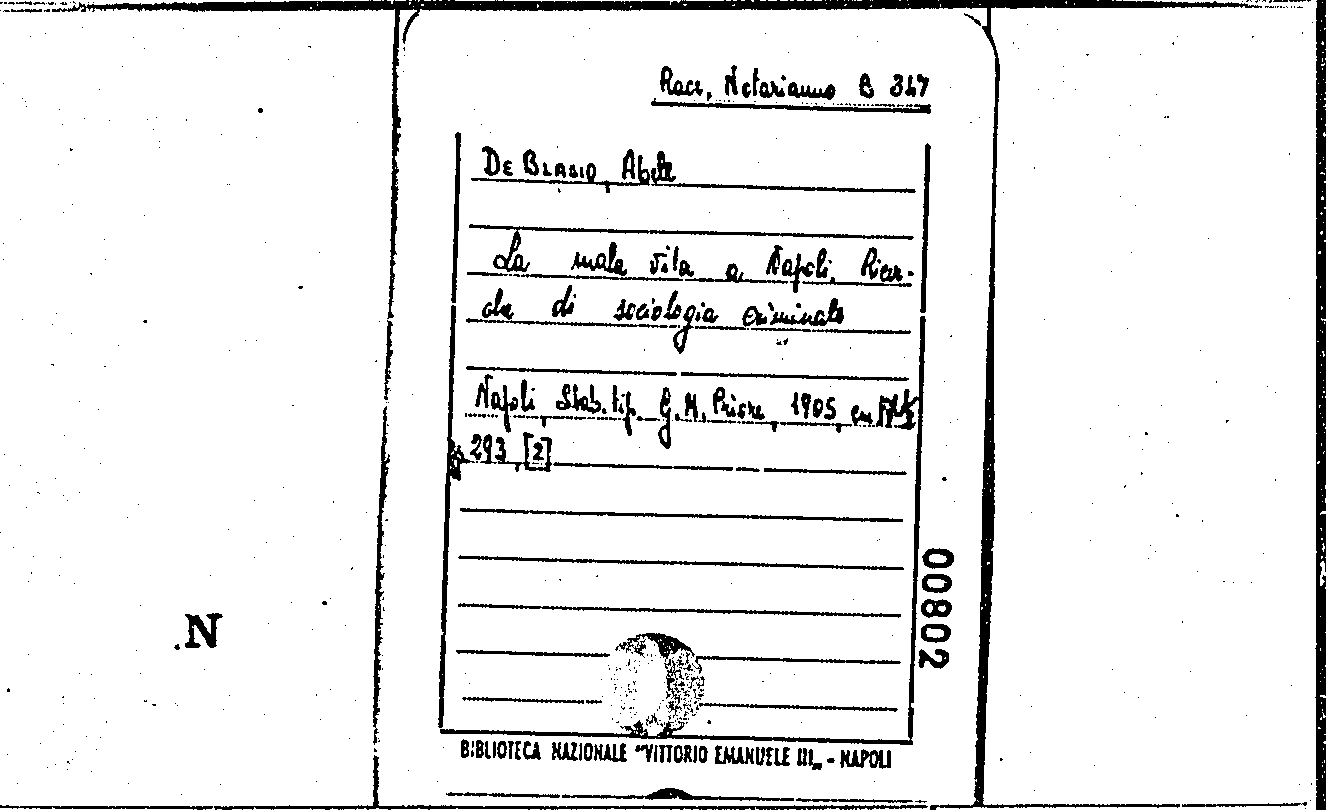 Racc. Notarianno B 347
DE BLASIO, Abele
La mala vita a Napoli. Ricer-
che di sociologia criminale
Napoli, Stab. tip. G. M. Priore, 1905, cm
293, [2]
00802
.N
BIBLIOTECA NAZIONALE "VITTORIO EMANUELE III„ - NAPOLI